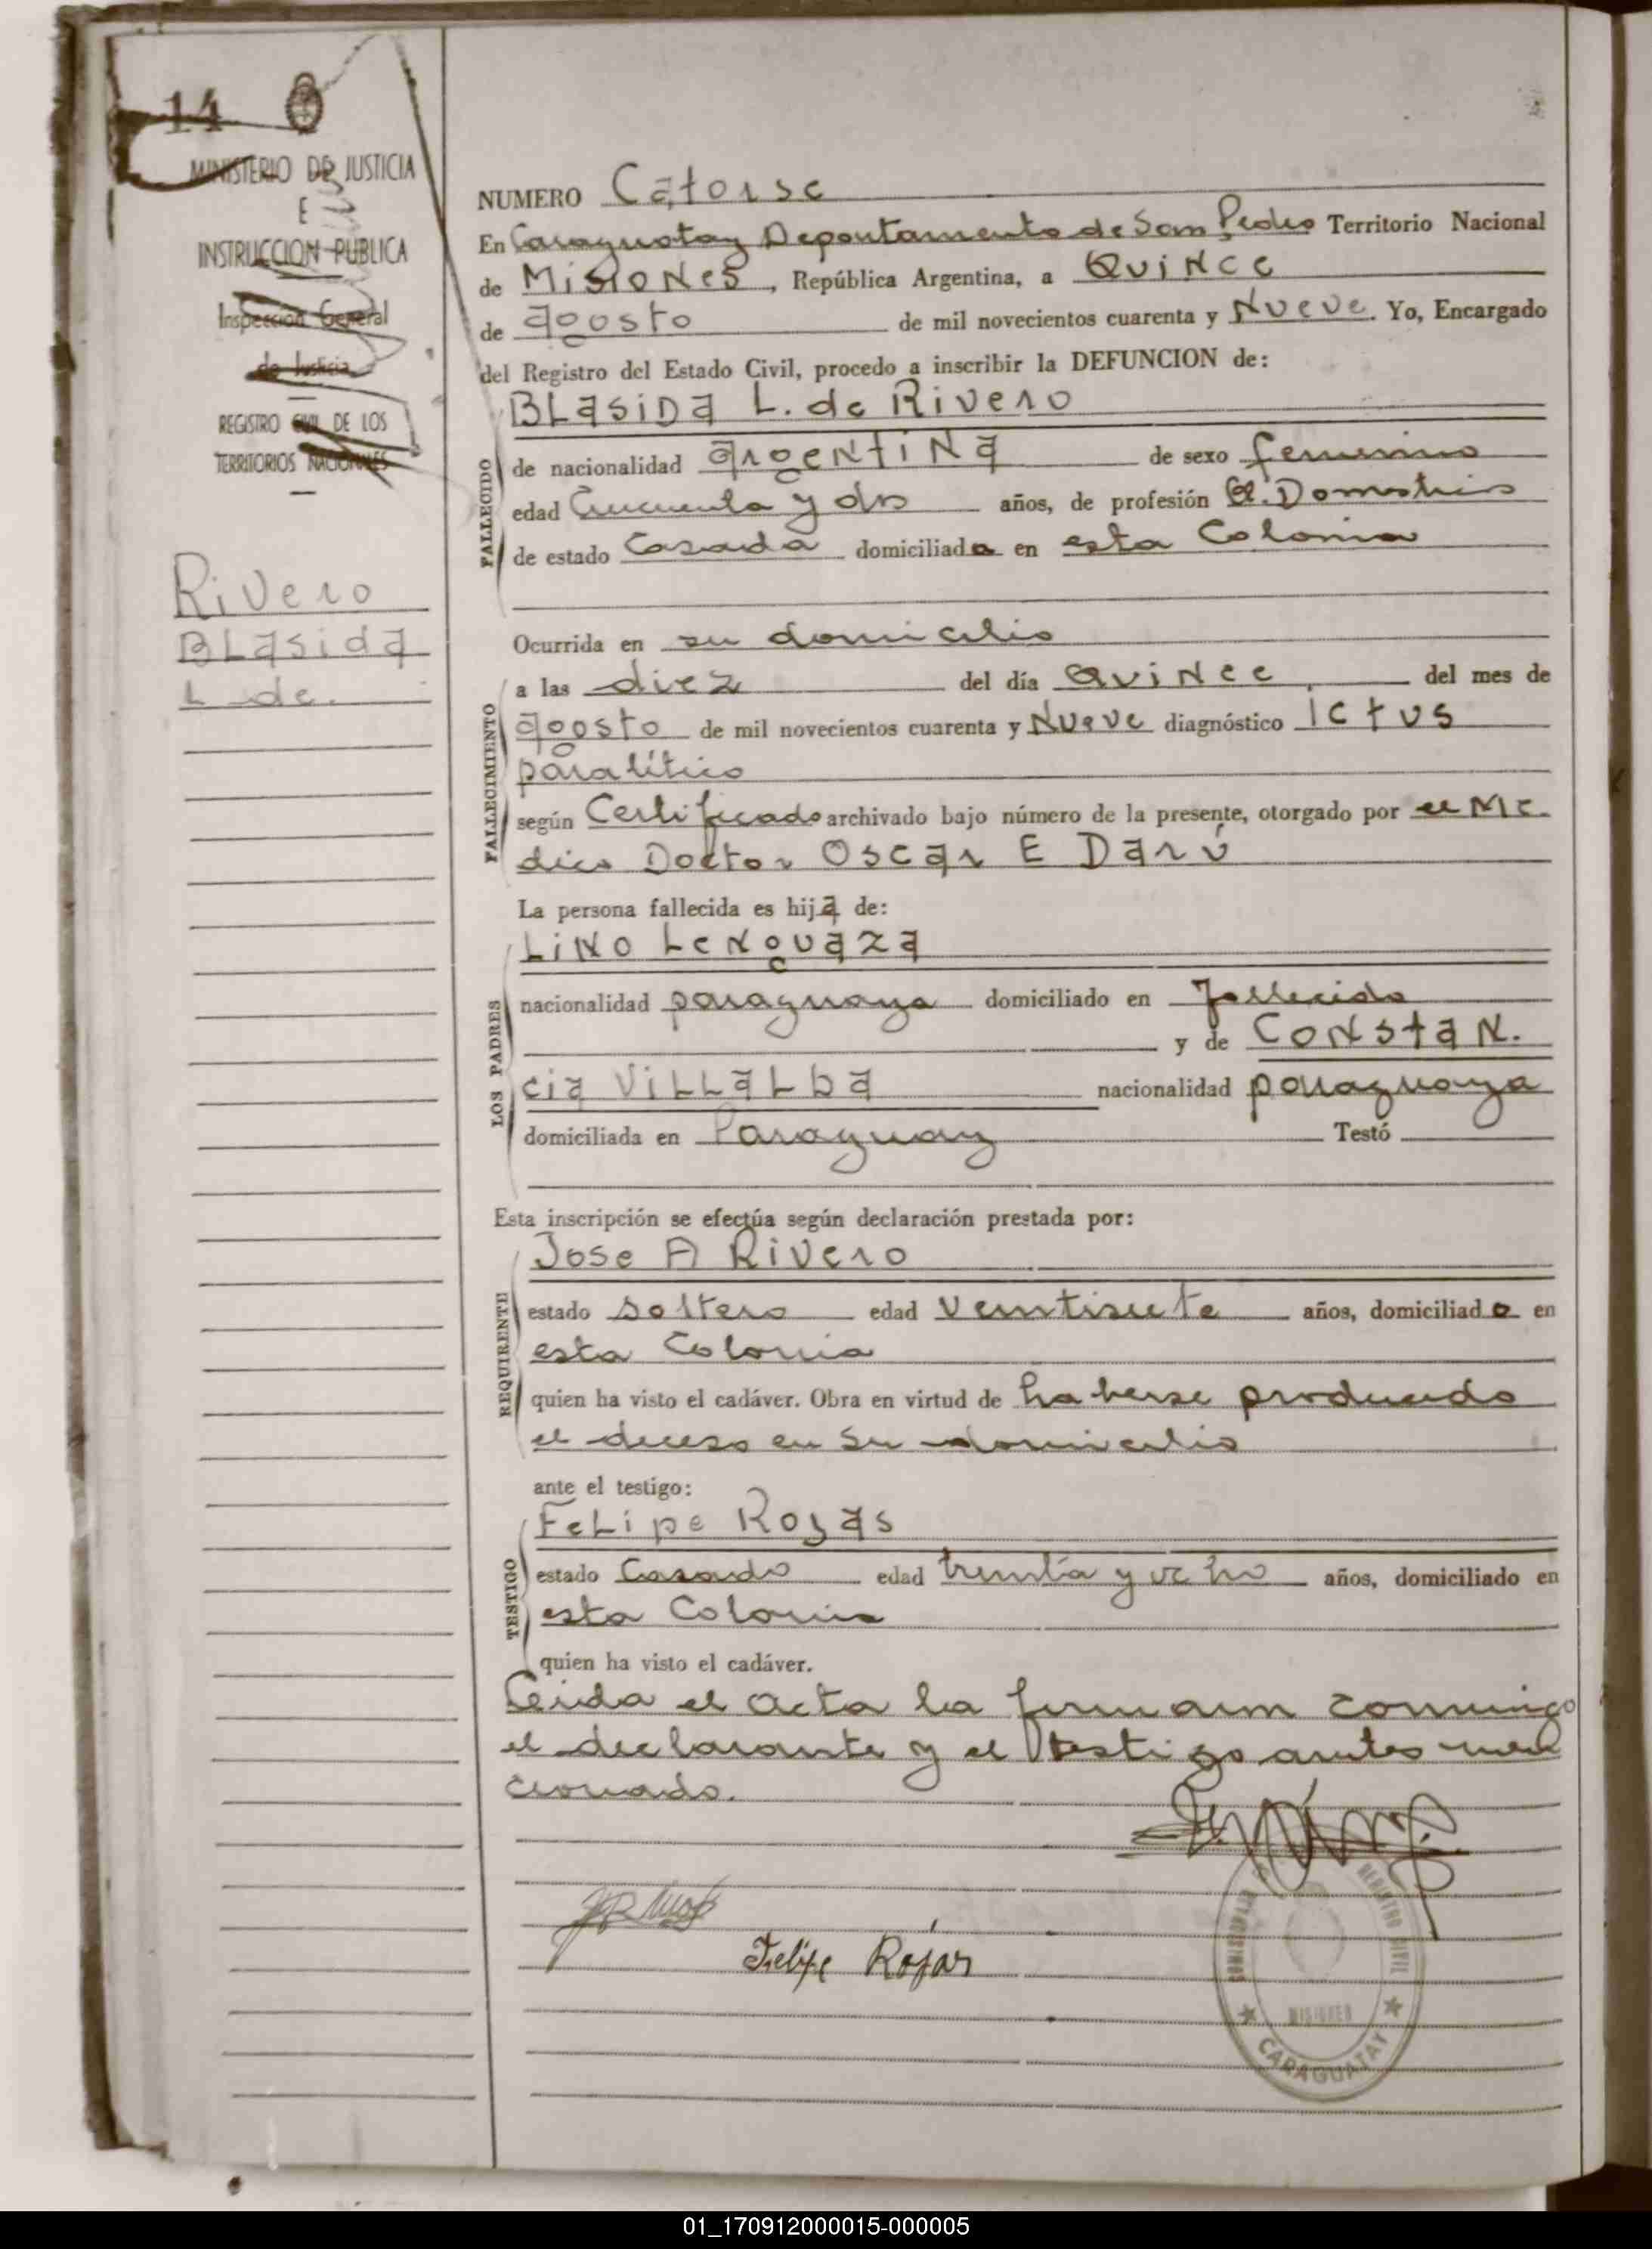 14
MINISTERIO DE JUSTICIA
E
INSTRUCCION PUBLICA
Inspección General
de Justicia
REGISTRO CIVIL DE LOS
TERRITORIOS NACIONALES
Rivero
BLasida
L de.
NUMERO Catorse
En Caraguatay Departamento de San Pedro Territorio Nacional
de MisioNes, República Argentina, a QuiNce
de agosto de mil novecientos cuarenta y Nueve. Yo, Encargado
del Registro del Estado Civil, procedo a inscribir la DEFUNCION de:
BLasiDa L. de Rivero
FALLECIDO
de nacionalidad argentiNa de sexo femenino
edad Cincuenta y dos años, de profesión Q. Domestico
de estado Casada domiciliada en esta Colonia
Ocurrida en su domicilio
FALLECIMIENTO
a las diez del día QuiNce del mes de
agosto de mil novecientos cuarenta y Nueve diagnóstico Ictus
paralítico
según Certificado archivado bajo número de la presente, otorgado por el Me.
dico Doctor Oscar E Darú
La persona fallecida es hija de:
LiNo LeNguaza
LOS PADRES
nacionalidad paraguaya domiciliado en fallecido
y de CoNstaN.
cia ViLLaLba nacionalidad paraguaya
domiciliada en Paraguay Testó
Esta inscripción se efectúa según declaración prestada por:
Jose A Rivero
REQUIRENTE
estado soltero edad Veintisiete años, domiciliado en
esta Colonia
quien ha visto el cadáver. Obra en virtud de haberse producido
el deceso en su domicilio
ante el testigo:
FeLipe Rojas
TESTIGO
estado Casado edad treinta y ocho años, domiciliado en
esta Colonia
quien ha visto el cadáver.
Leida el acta la firman conmigo
el declarante y el testigo antes men
cionado.
Felipe Rojas
REGISTRO CIVIL
MISIONES
CARAGUATAY
01_170912000015-000005